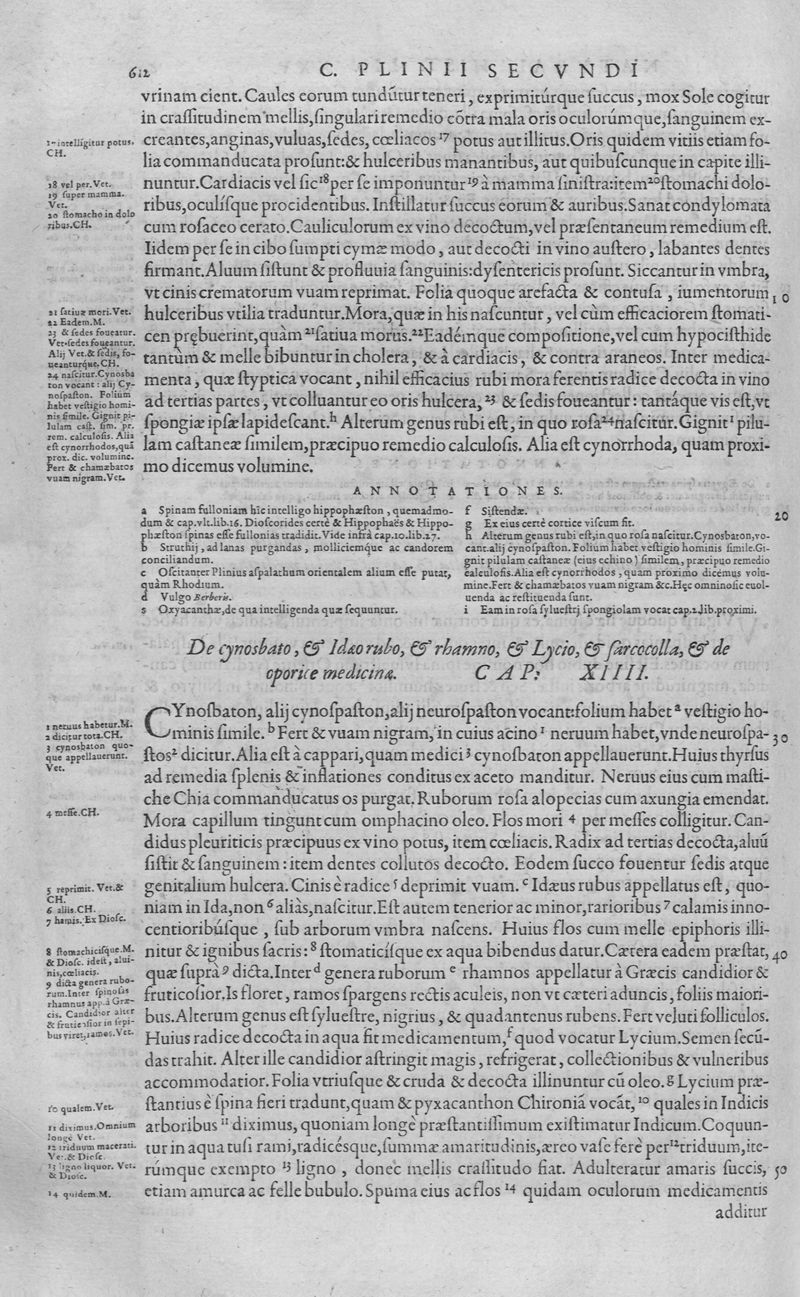 612
C. PLINII SECVNDI
vrinam cient. Caules eorum tundūtur teneri, exprimitúrque ſuccus, mox Sole cogitur
in craſſitudinem mellis, ſingulari remedio cōtra mala oris oculorúmque, ſanguinem ex-
creantes, anginas, vuluas, ſedes, cœliacos 17 potus aut illitus. Oris quidem vitiis etiam fo-
lia commanducata proſunt: & hulceribus manantibus, aut quibuſcunque in capite illi-
nuntur. Cardiacis vel ſic 18 per ſe imponuntur 19 à mamma ſiniſtra: item 20 ſtomachi dolo-
ribus, oculíſque procidentibus. Inſtillatur ſuccus eorum & auribus. Sanat condylomata
cum roſaceo cerato. Cauliculorum ex vino decoctum, vel præſentaneum remedium eſt.
Iidem per ſe in cibo ſumpti cymæ modo, aut decocti in vino auſtero, labantes dentes
firmant. Aluum ſiſtunt & profluuia ſanguinis: dyſentericis proſunt. Siccantur in vmbra,
vt cinis crematorum vuam reprimat. Folia quoque arefacta & contuſa, iumentorum 10
hulceribus vtilia traduntur. Mora, quæ in his naſcuntur, vel cùm efficaciorem ſtomati-
cen prębuerint, quàm 21 ſatiua morus. 22 Eadémque compoſitione, vel cum hypociſthide
tantùm & melle bibuntur in cholera, & à cardiacis, & contra araneos. Inter medica-
menta, quæ ſtyptica vocant, nihil efficacius rubi mora ferentis radice decocta in vino
ad tertias partes, vt colluantur eo oris hulcera, 23 & ſedis foueantur: tantáque vis eſt, vt
ſpongiæ ipſæ lapideſcant. h Alterum genus rubi eſt, in quo roſa 24 naſcitur. Gignit i pilu-
lam caſtaneæ ſimilem, præcipuo remedio calculoſis. Alia eſt cynorrhoda, quam proxi-
mo dicemus volumine.
17 intelligitur potus.
CH.
18 vel per. Vet.
19 ſuper mamma.
Vet.
20 ſtomacho in dolo
ribus. CH.
21 ſatiuæ mori. Vet.
22 Eadem. M.
23 & ſedes foueatur.
Vet. ſedes foueantur.
Alij Vet. & ſedis, fo-
ueanturque. CH.
24 naſcitur. Cynosba
ton vocant: alij Cy-
noſpaſton. Folium
habet veſtigio homi-
nis ſimile. Gignit pi-
lulam caſt. ſim. pr.
rem. calculoſis. Alia
eſt cynorrhodos, quā
prox. dic. volumine.
Fert & chamæbatos
vuam nigram. Vet.
ANNOTATIONES.
a Spinam fulloniam hîc intelligo hippophæſton, quemadmo-
dum & cap. vlt. lib. 16. Dioſcorides certè & Hippophaës & Hippo-
phæſton ſpinas eſſe fullonias tradidit. Vide infrà cap. 10. lib. 27.
b Struthij, ad lanas purgandas, molliciemque ac candorem
conciliandum.
c Oſcitanter Plinius aſpalathum orientalem alium eſſe putat,
quàm Rhodium.
d Vulgo Berberis.
s Oxyacanthæ, de qua intelligenda quæ ſequuntur.
f Siſtendæ.
g Ex eius certè cortice viſcum fit.
h Alterum genus rubi eſt, in quo roſa naſcitur. Cynosbaton, vo-
cant: alij cynoſpaſton. Folium habet veſtigio hominis ſimile. Gi-
gnit pilulam caſtaneæ (eius echino) ſimilem, præcipuo remedio
calculoſis. Alia eſt cynorrhodos, quam proximo dicemus volu-
mine. Fert & chamæbatos vuam nigram &c. Hęc omnino ſic euol-
uenda ac reſtituenda ſunt.
i Eam in roſa ſylueſtrj ſpongiolam vocat cap. 2. lib. proximi.
20
De cynosbato, & Idæo rubo, & rhamno, & Lycio, & ſarcocolla, & de
oporice medicina. CAP. XIIII.
CYnoſbaton, alij cynoſpaſton, alij neuroſpaſton vocant: folium habet a veſtigio ho-
minis ſimile. b Fert & vuam nigram, in cuius acino 1 neruum habet, vnde neuroſpa- 30
ſtos 2 dicitur. Alia eſt à cappari, quam medici 3 cynoſbaton appellauerunt. Huius thyrſus
ad remedia ſplenis & inflationes conditus ex aceto manditur. Neruus eius cum maſti-
che Chia commanducatus os purgat. Ruborum roſa alopecias cum axungia emendat.
Mora capillum tingunt cum omphacino oleo. Flos mori 4 per meſſes colligitur. Can-
didus pleuriticis præcipuus ex vino potus, item cœliacis. Radix ad tertias decocta, aluū
ſiſtit & ſanguinem: item dentes collutos decocto. Eodem ſucco fouentur ſedis atque
genitalium hulcera. Cinis è radice 5 deprimit vuam. c Idæus rubus appellatus eſt, quo-
niam in Ida, non 6 aliàs, naſcitur. Eſt autem tenerior ac minor, rarioribus 7 calamis inno-
centioribúſque, ſub arborum vmbra naſcens. Huius flos cum melle epiphoris illi-
nitur & ignibus ſacris: 8 ſtomaticíſque ex aqua bibendus datur. Cætera eadem præſtat, 40
quæ ſuprà 9 dicta. Inter d genera ruborum e rhamnos appellatur à Græcis candidior &
fruticoſior. Is floret, ramos ſpargens rectis aculeis, non vt cæteri aduncis, foliis maiori-
bus. Alterum genus eſt ſylueſtre, nigrius, & quadantenus rubens. Fert veluti folliculos.
Huius radice decocta in aqua fit medicamentum, f quod vocatur Lycium. Semen ſecū-
das trahit. Alter ille candidior aſtringit magis, refrigerat, collectionibus & vulneribus
accommodatior. Folia vtriuſque & cruda & decocta illinuntur cū oleo. g Lycium præ-
ſtantius è ſpina fieri tradunt, quam & pyxacanthon Chironiā vocāt, 10 quales in Indicis
arboribus 11 diximus, quoniam longè præſtantiſſimum exiſtimatur Indicum. Coquun-
tur in aqua tuſi rami, radicéſque, ſummæ amaritudinis, æreo vaſe ferè per 12 triduum, ite-
rúmque exempto 13 ligno, donec mellis craſſitudo fiat. Adulteratur amaris ſuccis, 50
etiam amurca ac felle bubulo. Spuma eius ac flos 14 quidam oculorum medicamentis
additur
1 neruus habetur. M.
2 dicitur tota. CH.
3 cynosbaton quo-
que appellauerunt.
Vet.
4 meſſe. CH.
5 reprimit. Vet. &
CH.
6 aliis. CH.
7 hamis. Ex Dioſc.
8 ſtomachiciſque. M.
& Dioſc. ideſt, alui-
nis, cœliacis.
9 dicta genera rubo-
rum. Inter ſpinoſas
rhamnus app. à Græ-
cis. Candidior alter
& fruticoſior in ſepi-
bus viret, ramos. Vet.
10 qualem. Vet.
11 diximus. Omnium
longè Vet.
12 triduum macerati.
Vet. & Dioſc.
13 ligno liquor. Vet.
& Dioſc.
14 quidem. M.